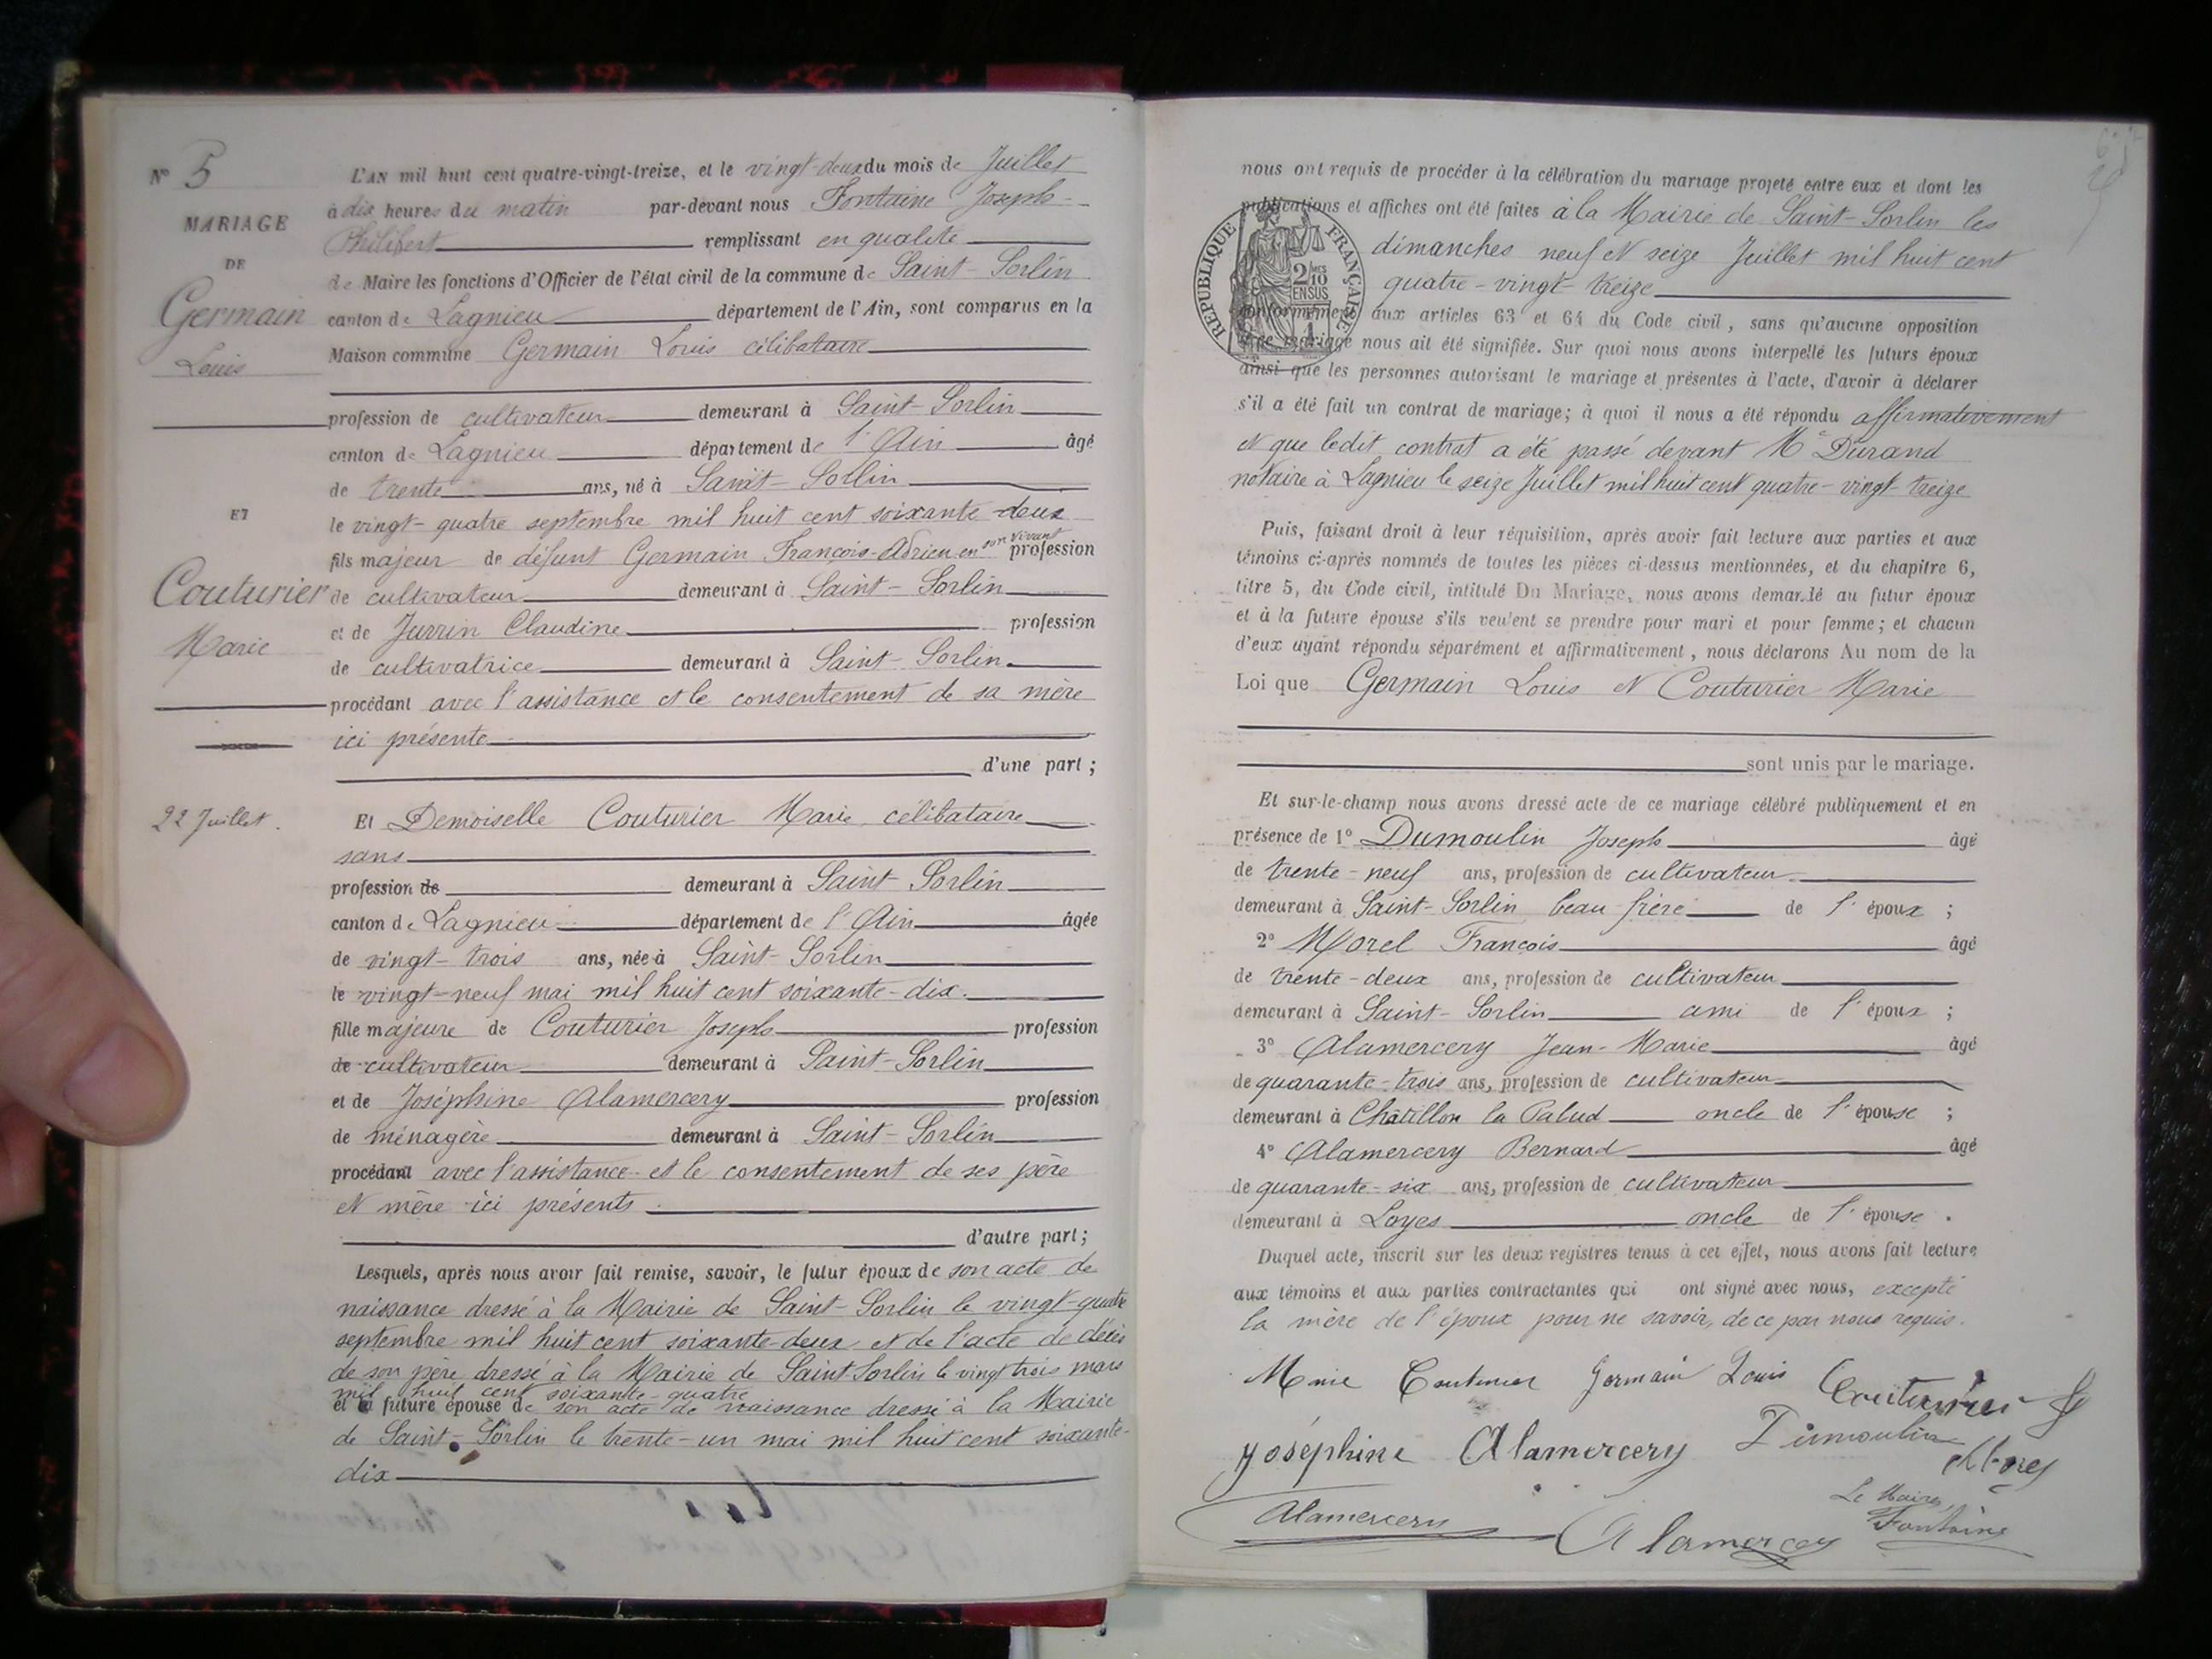 N° 5
MARIAGE
DE
Germain
Louis
ET
Couturier
Marie
22 Juillet.
L'AN mil huit cent quatre-vingt-treize, et le vingt-deux du mois de Juillet
à dix heures du matin par-devant nous Fontaine Joseph-
Philibert remplissant en qualité
de Maire les fonctions d'Officier de l'état civil de la commune de Saint-Sorlin
canton de Lagnieu département de l'Ain, sont comparus en la
Maison commune Germain Louis célibataire
profession de cultivateur demeurant à Saint-Sorlin
canton de Lagnieu département de l'Ain âgé
de trente ans, né à Saint-Sorlin
le vingt-quatre septembre mil huit cent soixante-deux
fils majeur de défunt Germain François-Adrien en son vivant profession
de cultivateur demeurant à Saint-Sorlin
et de Juvrin Claudine profession
de cultivatrice demeurant à Saint-Sorlin
procédant avec l'assistance et le consentement de sa mère
ici présente
d'une part;
Et Demoiselle Couturier Marie célibataire
sans
profession de demeurant à Saint-Sorlin
canton de Lagnieu département de l'Ain âgée
de vingt-trois ans, née à Saint-Sorlin
le vingt-neuf mai mil huit cent soixante-dix.
fille majeure de Couturier Joseph profession
de cultivateur demeurant à Saint-Sorlin
et de Joséphine Alamercery profession
de ménagère demeurant à Saint-Sorlin
procédant avec l'assistance et le consentement de ses père
et mère ici présents
d'autre part;
Lesquels, après nous avoir fait remise, savoir, le futur époux de son acte de
naissance dressé à la Mairie de Saint-Sorlin le vingt-quatre
septembre mil huit cent soixante-deux et de l'acte de décès
de son père dressé à la Mairie de Saint-Sorlin le vingt trois mars
mil huit cent soixante-quatre
et la future épouse de son acte de naissance dressé à la Mairie
de Saint-Sorlin le trente-un mai mil huit cent soixante-
dix
nous ont requis de procéder à la célébration du mariage projeté entre eux et dont les
publications et affiches ont été faites à la Mairie de Saint-Sorlin les
dimanches neuf et seize Juillet mil huit cent
quatre-vingt-treize
RÉPUBLIQUE FRANÇAISE
2/10 EN SUS
conformément aux articles 63 et 64 du Code civil, sans qu'aucune opposition
à ce mariage nous ait été signifiée. Sur quoi nous avons interpellé les futurs époux
ainsi que les personnes autorisant le mariage et présentes à l'acte, d'avoir à déclarer
s'il a été fait un contrat de mariage; à quoi il nous a été répondu affirmativement
et que ledit contrat a été passé devant Me Durand
notaire à Lagnieu le seize Juillet mil huit cent quatre-vingt-treize
Puis, faisant droit à leur réquisition, après avoir fait lecture aux parties et aux
témoins ci-après nommés de toutes les pièces ci-dessus mentionnées, et du chapitre 6,
titre 5, du Code civil, intitulé Du Mariage, nous avons demandé au futur époux
et à la future épouse s'ils veulent se prendre pour mari et pour femme; et chacun
d'eux ayant répondu séparément et affirmativement, nous déclarons Au nom de la
Loi que Germain Louis et Couturier Marie
sont unis par le mariage.
Et sur-le-champ nous avons dressé acte de ce mariage célébré publiquement et en
présence de 1° Dumoulin Joseph âgé
de trente-neuf ans, profession de cultivateur
demeurant à Saint-Sorlin beau frère de l'époux;
2° Morel François âgé
de trente-deux ans, profession de cultivateur
demeurant à Saint-Sorlin ami de l'époux;
3° Alamercery Jean-Marie âgé
de quarante-trois ans, profession de cultivateur
demeurant à Châtillon la Palud oncle de l'épouse;
4° Alamercery Bernard âgé
de quarante-six ans, profession de cultivateur
demeurant à Loyes oncle de l'épouse.
Duquel acte, inscrit sur les deux registres tenus à cet effet, nous avons fait lecture
aux témoins et aux parties contractantes qui ont signé avec nous, excepté
la mère de l'époux pour ne savoir, de ce par nous requis.
Marie Couturier Germain Louis Couturier J
Joséphine Alamercery Dumoulin Morel
Alamercery Alamercery
Le Maire,
Fontaine